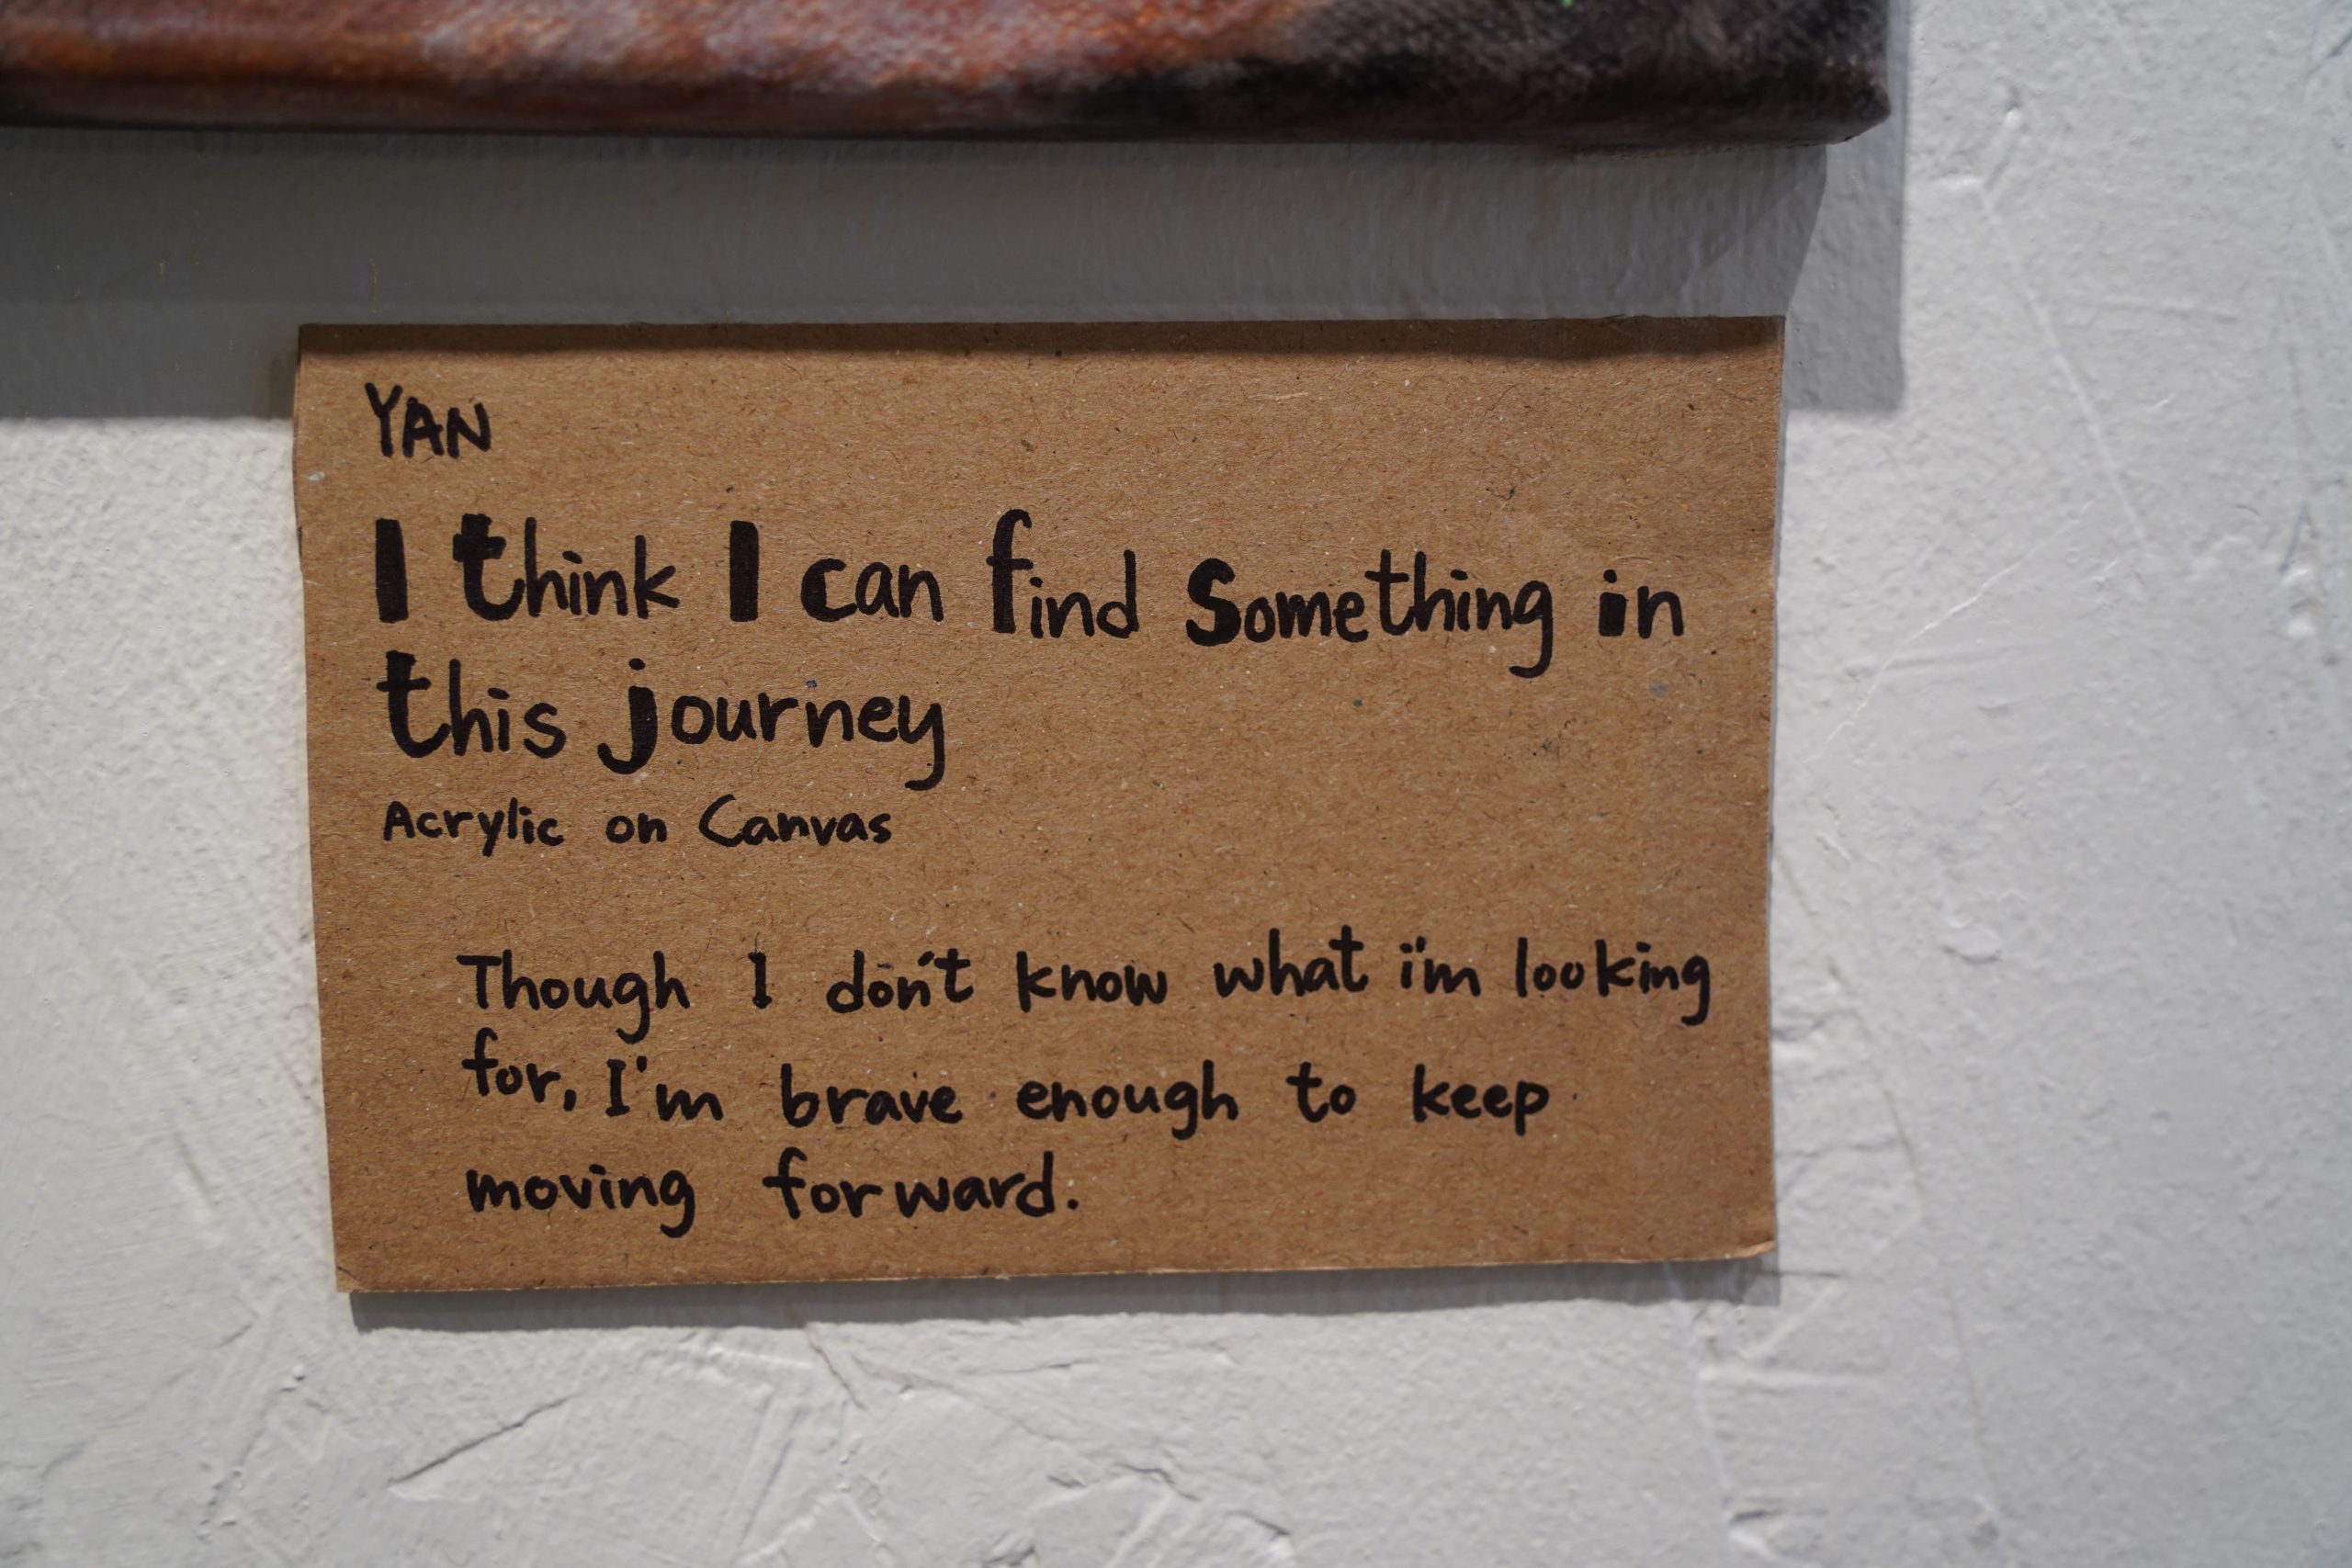 YAN
I think I can find something in
this journey
Acrylic on Canvas
Though I don't know what i'm looking
for, I'm brave enough to keep
moving forward.